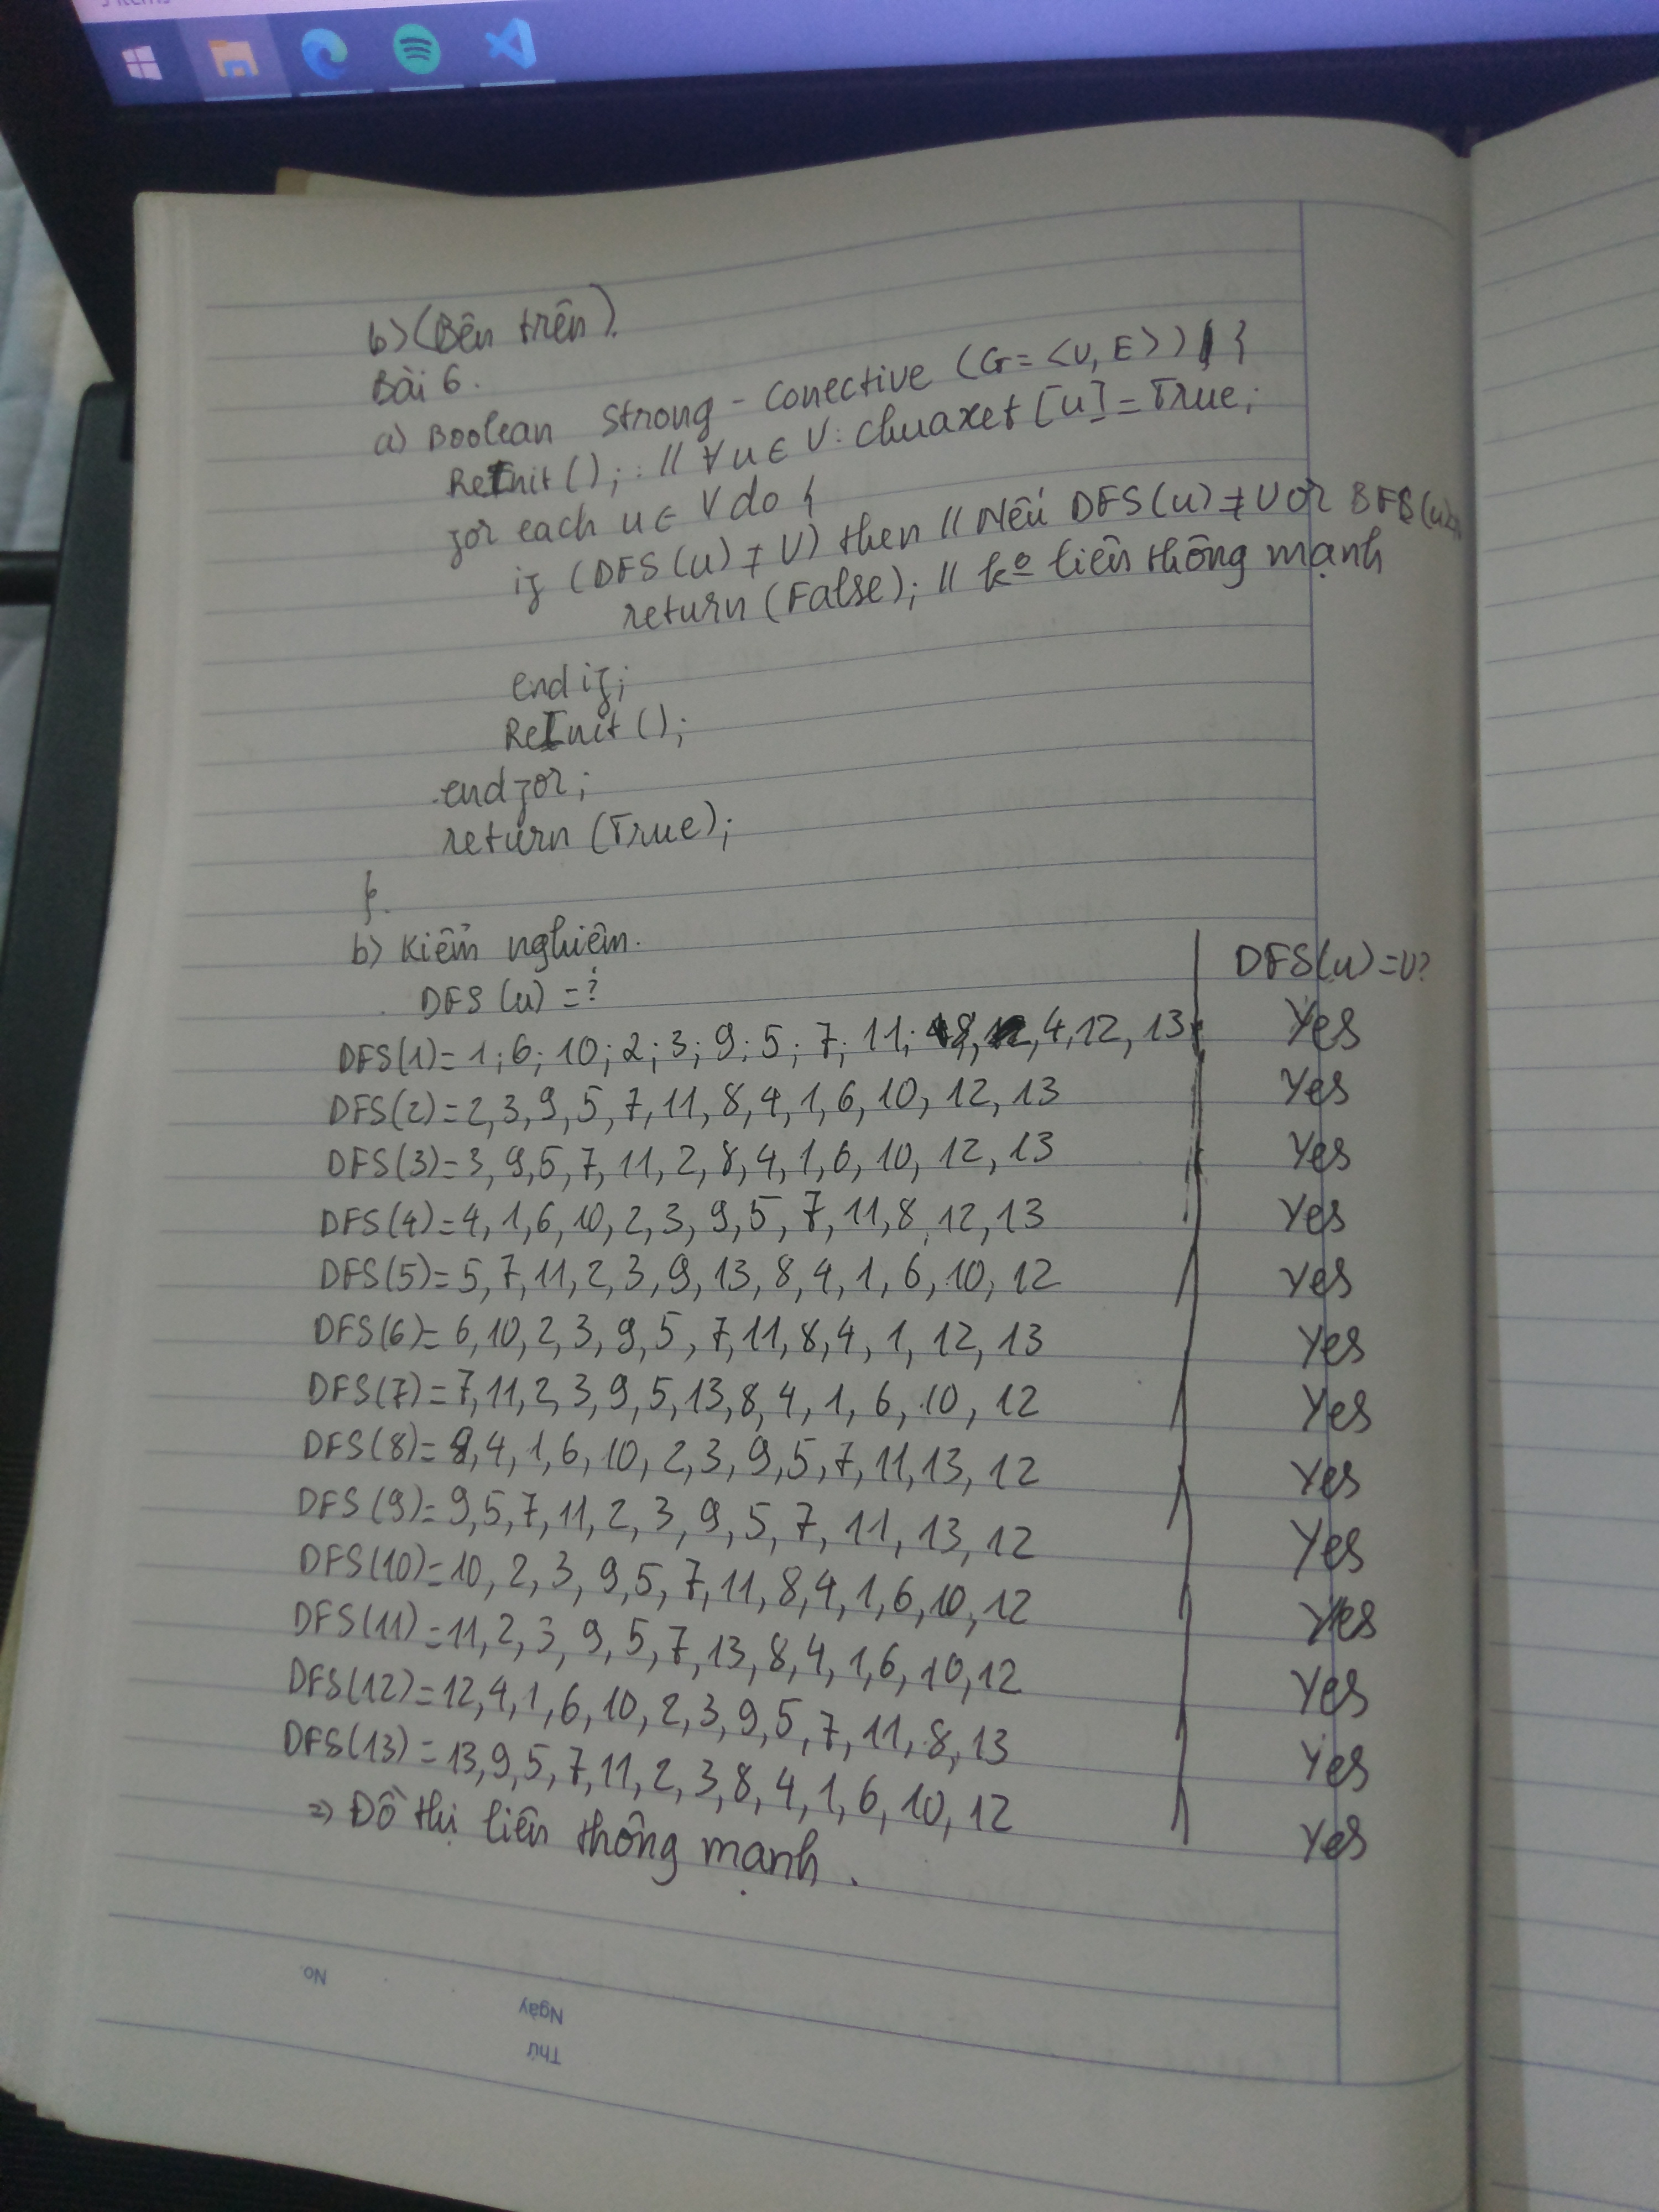 b) (Bên trên).
Bài 6.
a) Boolean Strong - Conective (G = <V, E>) {
ReInit(); // ∀u ∈ V: chuaxet [u] = True;
for each u ∈ V do {
if (DFS(u) ≠ V) then // Nếu DFS(u) ≠ V or BFS(u)
return (False); // ko liên thông mạnh
endif;
ReInit();
endfor;
return (True);
}.
b) Kiểm nghiệm.
DFS(u) = ? DFS(u) = V?
DFS(1) = 1; 6; 10; 2; 3; 9; 5; 7; 11; 8, 4, 12, 13 Yes
DFS(2) = 2, 3, 9, 5, 7, 11, 8, 4, 1, 6, 10, 12, 13 Yes
DFS(3) = 3, 9, 5, 7, 11, 2, 8, 4, 1, 6, 10, 12, 13 Yes
DFS(4) = 4, 1, 6, 10, 2, 3, 9, 5, 7, 11, 8, 12, 13 Yes
DFS(5) = 5, 7, 11, 2, 3, 9, 13, 8, 4, 1, 6, 10, 12 Yes
DFS(6) = 6, 10, 2, 3, 9, 5, 7, 11, 8, 4, 1, 12, 13 Yes
DFS(7) = 7, 11, 2, 3, 9, 5, 13, 8, 4, 1, 6, 10, 12 Yes
DFS(8) = 8, 4, 1, 6, 10, 2, 3, 9, 5, 7, 11, 13, 12 Yes
DFS(9) = 9, 5, 7, 11, 2, 3, 9, 5, 7, 11, 13, 12 Yes
DFS(10) = 10, 2, 3, 9, 5, 7, 11, 8, 4, 1, 6, 10, 12 Yes
DFS(11) = 11, 2, 3, 9, 5, 7, 13, 8, 4, 1, 6, 10, 12 Yes
DFS(12) = 12, 4, 1, 6, 10, 2, 3, 9, 5, 7, 11, 8, 13 Yes
DFS(13) = 13, 9, 5, 7, 11, 2, 3, 8, 4, 1, 6, 10, 12 Yes
=> Đồ thị liên thông mạnh.
No.
Ngày
Thứ